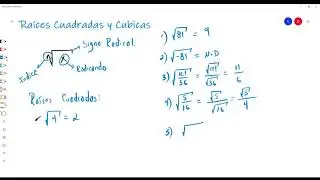 Raíces Cuadradas y Cubicas
Signo Radical.
x
Indice
Radicando
Raíces Cuadradas:
√4 = 2
1) √81 = 9
2) √-81 = N.D
3) √121/36 = √121/√36 = 11/6
4) √5/16 = √5/√16 = √5/4
5) √